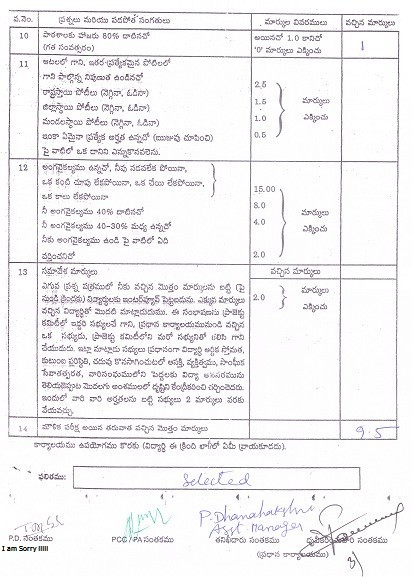 వ.నెం. ప్రశ్నలు మరియు పదపోత సంగతులు మార్కుల వివరములు వచ్చిన మార్కులు
10 పాఠశాలకు హాజరు 80% దాటినచో అయినచో 1.0 కానిచో 1
(గత సంవత్సరం) '0' మార్కులు ఎక్కించు
11 ఆటలలో గాని, ఇతర ప్రత్యేకమైన పోటీలలో
గాని పాల్గొన్న నిపుణత ఉండినచో 2.5
రాష్ట్రస్థాయి పోటీలు (నెగ్గినా, ఓడినా) 1.5 మార్కులు
జిల్లాస్థాయి పోటీలు (నెగ్గినా, ఓడినా) 1.0 ఎక్కించు
మండలస్థాయి పోటీలు (నెగ్గినా, ఓడినా) 0.5
ఇంకా ఏమైనా ప్రత్యేక అర్హత ఉన్నచో (ఋజువు చూపించి)
పై వాటిలో ఒక దానిని ఎన్నుకొనవలెను.
12 అంగవైకల్యము ఉన్నచో, నీవు నడవలేక పోయినా,
ఒక కంటి చూపు లేకపోయినా, ఒక చేయి లేకపోయినా, 15.00
ఒక కాలు లేకపోయినా 8.0
నీ అంగవైకల్యము 40% దాటినచో 4.0 మార్కులు
నీ అంగవైకల్యము 40-30% మధ్య ఉన్నచో ఎక్కించు
నీకు అంగవైకల్యము ఉండి పై వాటిలో ఏది 2.0
వర్తించనిచో
13 సమావేశ మార్కులు వచ్చిన మార్కులు
ఎగువ ప్రశ్న పత్రములో నీకు వచ్చిన మొత్తం మార్కులను బట్టి (పై 2.0 మార్కులు
నుండి క్రిందకు) విద్యార్థులకు ఇంటర్వ్యూన్ పెట్టబడును. ఎక్కువ మార్కులు ఎక్కించు
వచ్చిన విద్యార్థితో మొదటి మాట్లాడుదుము. ఈ సంభాషణను ప్రాజెక్టు
కమిటీలో ఇద్దరి సభ్యులనే గాని, ప్రధాన కార్యాలయమునుండి వచ్చిన
ఒక సభ్యుడు, ప్రాజెక్టు కమిటీలోని మరో సభ్యునితో కలిసి గాని
చేయుదురు. ఇట్లా మాట్లాడు సభ్యులు ప్రధానంగా విద్యార్థి ఆర్థిక స్తోమత,
కుటుంబ పరిస్థితి, చదువు కొనసాగించుటలో ఆసక్తి, వ్యక్తిత్వము, సాంఘిక
ఇందులో వారి వారి అర్హతలను బట్టి సభ్యులు 2 మార్కులు వరకు
వేయువచ్చు.
14 మౌఖిక పరీక్ష అయిన తరువాత వచ్చిన మొత్తం మార్కులు 9.5
కార్యాలయము ఉపయోగము కొరకు (విద్యార్థి ఈ క్రింది ఖాళీలో ఏమీ వ్రాయకూడదు).
ఫలితము: Selected
P. Dhanalakshmi
Asst. Manager
P.D. సంతకము PCC / PA సంతకము తనిఖీదారు సంతకము ధృవీకరించువారి సంతకము
(ప్రధాన కార్యాలయము)
I am Sorry !!!!!